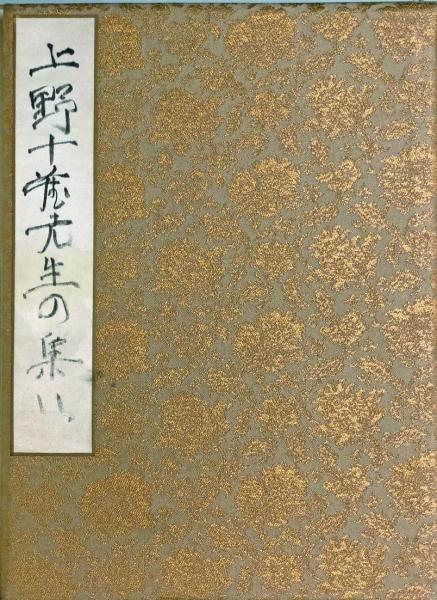 上野十藏先生の集い